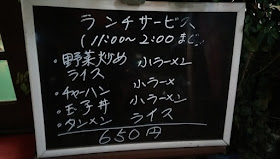 ランチサービス
(11:00～2:00まで)
・野菜炒め 小ラーメン
ライス
・チャーハン 小ラーメ
・玉子丼 小ラーメン
・タンメン ライス
650円